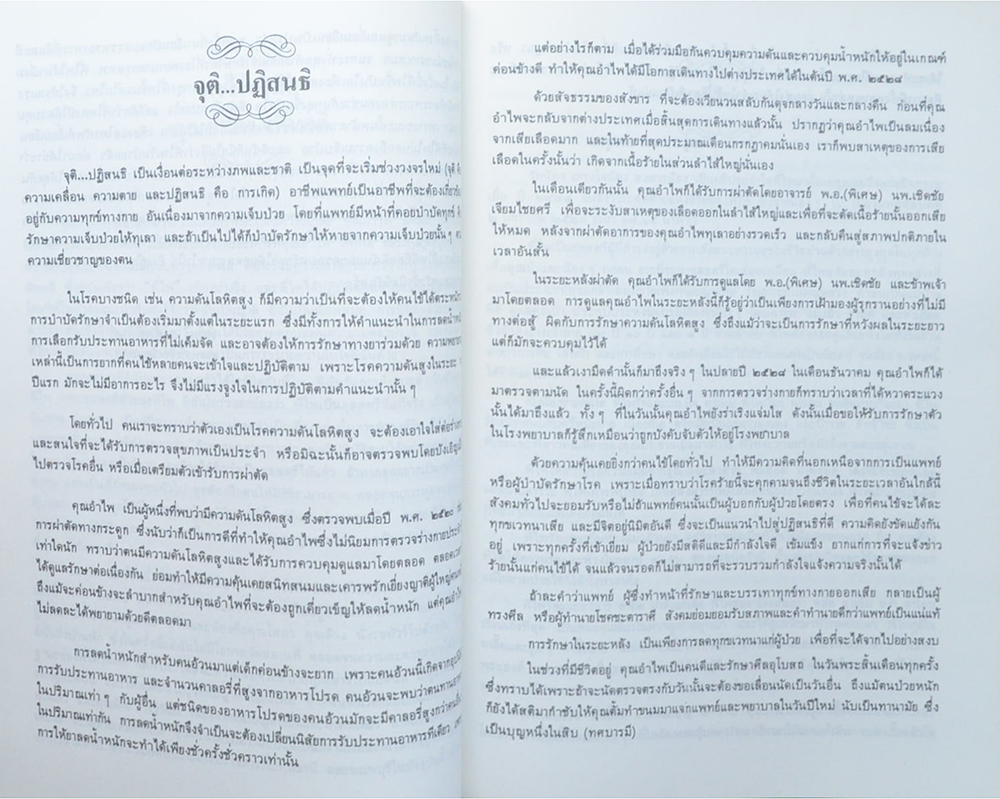 จุติ...ปฏิสนธิ
จุติ...ปฏิสนธิ เป็นเงื่อนต่อระหว่างภพและชาติ เป็นจุดที่จะเริ่มช่วงวงจรใหม่ (จุติ
ความเคลื่อน ความตาย และปฏิสนธิ คือ การเกิด) อาชีพแพทย์เป็นอาชีพที่จะต้องเกี่ยวข้อง
อยู่กับความทุกข์ทางกาย อันเนื่องมาจากความเจ็บป่วย โดยที่แพทย์มีหน้าที่คอยบำบัดทุกข์
รักษาความเจ็บป่วยให้ทุเลา และถ้าเป็นไปได้ก็บำบัดรักษาให้หายจากความเจ็บป่วยนั้น ๆ
ความเชี่ยวชาญของตน
ในโรคบางชนิด เช่น ความดันโลหิตสูง ก็มีความจำเป็นที่จะต้องให้คนไข้ได้ตระหนัก
การบำบัดรักษาจำเป็นต้องเริ่มมาตั้งแต่ในระยะแรก ซึ่งมีทั้งการให้คำแนะนำในการลดน้ำหนัก
การเลือกรับประทานอาหารที่ไม่เค็มจัด และอาจต้องให้การรักษาทางยาร่วมด้วย
เหล่านี้เป็นการยากที่คนไข้หลายคนจะเข้าใจและปฏิบัติตาม เพราะโรคความดันสูงในระยะ
ปีแรก มักจะไม่มีอาการอะไร จึงไม่มีแรงจูงใจในการปฏิบัติตามคำแนะนำนั้น ๆ
โดยทั่วไป คนเราจะทราบว่าตัวเองเป็นโรคความดันโลหิตสูง จะต้องเอาใจใส่ต่อร่างกาย
และสนใจที่จะได้รับการตรวจสุขภาพเป็นประจำ หรือมิฉะนั้นก็อาจตรวจพบโดยบังเอิญ
ไปตรวจโรคอื่น หรือเมื่อเตรียมตัวเข้ารับการผ่าตัด
คุณอำไพ เป็นผู้หนึ่งที่พบว่ามีความดันโลหิตสูง ซึ่งตรวจพบเมื่อปี พ.ศ. ๒๕๒๐
การผ่าตัดทางกระดูก ซึ่งนับว่าก็เป็นการดีที่ทำให้คุณอำไพซึ่งไม่นิยมการตรวจร่างกายประจำ
เท่าใดนัก ทราบว่าตนมีความดันโลหิตสูงและได้รับการควบคุมดูแลมาโดยตลอด ตลอดเวลา
ได้ดูแลรักษาต่อเนื่องกัน ย่อมทำให้มีความคุ้นเคยสนิทสนมและเคารพรักเยี่ยงญาติผู้ใหญ่
ถึงแม้จะค่อนข้างจะลำบากสำหรับคุณอำไพที่จะต้องถูกเคี่ยวเข็ญให้ลดน้ำหนัก แต่คุณอำไพ
ไม่ลดละได้พยายามด้วยดีตลอดมา
การลดน้ำหนักสำหรับคนอ้วนมาแต่เด็กค่อนข้างจะยาก เพราะคนอ้วนนี้เกิดจากอุปนิสัย
การรับประทานอาหาร และจำนวนคาลอรี่ที่สูงจากอาหารโปรด คนอ้วนจะพบว่าตนทานอาหาร
ในปริมาณเท่า ๆ กับผู้อื่น แต่ชนิดของอาหารโปรดของคนอ้วนมักจะมีคาลอรี่สูงกว่าคนอื่น
ในปริมาณเท่ากัน การลดน้ำหนักจึงจำเป็นจะต้องเปลี่ยนนิสัยการรับประทานอาหารทีเดียว
การให้ยาลดน้ำหนักจะทำได้เพียงชั่วครั้งชั่วคราวเท่านั้น
แต่อย่างไรก็ตาม เมื่อได้ร่วมมือกันควบคุมความดันและควบคุมน้ำหนักให้อยู่ในเกณฑ์
ค่อนข้างดี ทำให้คุณอำไพได้มีโอกาสเดินทางไปต่างประเทศได้ในต้นปี พ.ศ. ๒๕๒๘
ด้วยสัจธรรมของสังขาร ที่จะต้องเวียนวนสลับกันดุจกลางวันและกลางคืน ก่อนที่คุณ
อำไพจะกลับจากต่างประเทศเมื่อสิ้นสุดการเดินทางแล้วนั้น ปรากฏว่าคุณอำไพเป็นลมเนื่อง
จากเสียเลือดมาก และในท้ายที่สุดประมาณเดือนกรกฎาคมนั่นเอง เราก็พบสาเหตุของการเสีย
เลือดในครั้งนั้นว่า เกิดจากเนื้อร้ายในส่วนลำไส้ใหญ่นั่นเอง
ในเดือนเดียวกันนั้น คุณอำไพก็ได้รับการผ่าตัดโดยอาจารย์ พ.อ.(พิเศษ) นพ.เชิดชัย
เจียมไชยศรี เพื่อจะระงับสาเหตุของเลือดออกในลำไส้ใหญ่และเพื่อที่จะตัดเนื้อร้ายนั้นออกเสีย
ให้หมด หลังจากผ่าตัดอาการของคุณอำไพทุเลาอย่างรวดเร็ว และกลับคืนสู่สภาพปกติภายใน
เวลาอันสั้น
ในระยะหลังผ่าตัด คุณอำไพก็ได้รับการดูแลโดย พ.อ.(พิเศษ) นพ.เชิดชัย และข้าพเจ้า
มาโดยตลอด การดูแลคุณอำไพในระยะหลังนี้ก็รู้อยู่ว่าเป็นเพียงการเฝ้ามองผู้รุกรานอย่างที่ไม่มี
ทางต่อสู้ ผิดกับการรักษาความดันโลหิตสูง ซึ่งถึงแม้ว่าจะเป็นการรักษาที่หวังผลในระยะยาว
แต่ก็มักจะควบคุมไว้ได้
และแล้วเงามืดดำนั้นก็มาถึงจริง ๆ ในปลายปี ๒๕๒๘ ในเดือนธันวาคม คุณอำไพก็ได้
มาตรวจตามนัด ในครั้งนี้ผิดกว่าครั้งอื่น ๆ จากการตรวจร่างกายก็ทราบว่าเวลาที่ได้หวาดระแวง
นั้นได้มาถึงแล้ว ทั้ง ๆ ที่ในวันนั้นคุณอำไพยังร่าเริงแจ่มใส ดังนั้นเมื่อขอให้รับการรักษาตัว
ในโรงพยาบาลก็รู้สึกเหมือนว่าถูกบังคับจับตัวให้อยู่โรงพยาบาล
ด้วยความคุ้นเคยยิ่งกว่าคนไข้โดยทั่วไป ทำให้มีความคิดที่นอกเหนือจากการเป็นแพทย์
หรือผู้บำบัดรักษาโรค เพราะเมื่อทราบว่าโรคร้ายนี้จะคุกคามจนถึงชีวิตในระยะเวลาอันใกล้นี้
สังคมทั่วไปจะยอมรับหรือไม่ถ้าแพทย์คนนั้นเป็นผู้บอกกับผู้ป่วยโดยตรง เพื่อที่คนไข้จะได้ละ
ทุกขเวทนาเสีย และมีจิตอยู่นิมิตอันดี ซึ่งจะเป็นแนวนำไปสู่ปฏิสนธิที่ดี ความคิดยังขัดแย้งกัน
อยู่ เพราะทุกครั้งที่เข้าเยี่ยม ผู้ป่วยยังมีสติดีและมีกำลังใจดี เข้มแข็ง ยากแก่การที่จะแจ้งข่าว
ร้ายนั้นแก่คนไข้ได้ จนแล้วจนรอดก็ไม่สามารถที่จะรวบรวมกำลังใจแจ้งความจริงนั้นได้
ถ้าละคำว่าแพทย์ ผู้ซึ่งทำหน้าที่รักษาและบรรเทาทุกข์ทางกายออกเสีย กลายเป็นผู้
ทรงศีล หรือผู้ทำนายโชคชะตาราศี สังคมย่อมยอมรับสภาพและคำทำนายดีกว่าแพทย์เป็นแน่แท้
การรักษาในระยะหลัง เป็นเพียงการลดทุกขเวทนาแก่ผู้ป่วย เพื่อที่จะได้จากไปอย่างสงบ
ในช่วงที่มีชีวิตอยู่ คุณอำไพเป็นคนดีและรักษาศีลอุโบสถ ในวันพระสิ้นเดือนทุกครั้ง
ซึ่งทราบได้เพราะถ้าจะนัดตรวจตรงกับวันนั้นจะต้องขอเลื่อนนัดเป็นวันอื่น ถึงแม้ตนป่วยหนัก
ก็ยังได้สติมากำชับให้คุณตั้มทำขนมมาแจกแพทย์และพยาบาลในวันปีใหม่ นับเป็นทานามัย ซึ่ง
เป็นบุญหนึ่งในสิบ (ทศบารมี)